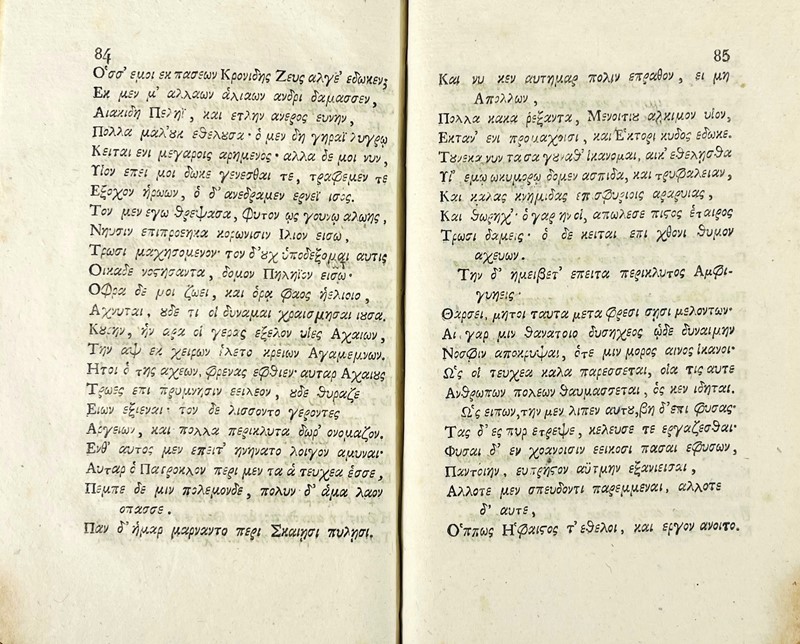 84
Ὁσσ' εμοι εκ πασεων Κρονιδης Ζευς αλγε' εδωκεν;
Εκ μεν μ' αλλαων ἁλιαων ανδρι δαμασσεν,
Αιακιδη Πεληϊ, και ετλην ανερος ευνην,
Πολλα μαλ' ουκ εθελουσα· ὁ μεν δη γηραϊ λυγρῳ
Κειται ενι μεγαροις αρημενος· αλλα δε μοι νυν,
Υἱον επει μοι δωκε γενεσθαι τε, τραφεμεν τε
Εξοχον ἡρωων, ὁ δ' ανεδραμεν ερνεϊ ισος.
Τον μεν εγω θρεψασα, φυτον ὡς γουνῳ αλωης,
Νηυσιν επιπροεηκα κορωνισιν Ιλιον εισω,
Τρωσι μαχησομενον· τον δ' ουχ ὑποδεξομαι αυτις
Οικαδε νοστησαντα, δομον Πηληϊον εισω·
Οφρα δε μοι ζωει, και ὁρα φαος ηελιοιο,
Αχνυται, ουδε τι οἱ δυναμαι χραισμησαι ιουσα.
Κουρην, ἡν αρα οἱ γερας εξελον υἱες Αχαιων,
Την αψ εκ χειρων ἑλετο κρειων Αγαμεμνων.
Ητοι ὁ της αχεων, φρενας εφθιεν· αυταρ Αχαιους
Τρωες επι πρυμνησιν εειλεον, ουδε θυραζε
Ειων εξιεναι· τον δε λισσοντο γεροντες
Αργειων, και πολλα περικλυτα δωρ' ονομαζον.
Ενθ' αυτος μεν επειτ' ηνηνατο λοιγον αμυναι·
Αυταρ ὁ Πατροκλον περι μεν τα ἁ τευχεα ἑσσε,
Πεμπε δε μιν πολεμονδε, πολυν δ' ἁμα λαον
οπασσε.
Παν δ' ἡμαρ μαρναντο περι Σκαιῃσι πυλῃσι.
85
Και νυ κεν αυτημαρ πολιν επραθον, ει μη
Απολλων,
Πολλα κακα ῥεξαντα, Μενοιτιου αλκιμον υἱον,
Εκταν' ενι προμαχοισι, και Ἑκτορι κυδος εδωκε.
Τουνεκα νυν τα σα γουναθ' ἱκανομαι, αικ' εθελῃσθα
Υἱ' εμῳ ωκυμορῳ δομεν ασπιδα, και τρυφαλειαν,
Και καλας κνημιδας επισφυριοις αραρυιας,
Και θωρηχ'· ὁ γαρ ην οἱ, απωλεσε πιστος ἑταιρος
Τρωσι δαμεις· ὁ δε κειται επι χθονι θυμον
αχευων.
Την δ' ημειβετ' επειτα περικλυτος Αμφι-
γυηεις·
Θαρσει, μητοι ταυτα μετα φρεσι σῃσι μελοντων·
Αι γαρ μιν θανατοιο δυσηχεος ὡδε δυναιμην
Νοσφιν αποκρυψαι, ὁτε μιν μορος αινος ἱκανοι·
Ὡς οἱ τευχεα καλα παρεσσεται, οἱα τις αυτε
Ανθρωπων πολεων θαυμασσεται, ὁς κεν ιδηται.
Ὡς ειπων, την μεν λιπεν αυτου, βη δ' επι φυσας·
Τας δ' ες πυρ ετρεψε, κελευσε τε εργαζεσθαι·
Φυσαι δ' εν χοανοισιν εεικοσι πασαι εφυσων,
Παντοιην, ευπρηστον αϋτμην εξανιεισαι,
Αλλοτε μεν σπευδοντι παρεμμεναι, αλλοτε
δ' αυτε,
Ὁππως Ηφαιστος τ' εθελοι, και εργον ανοιτο.